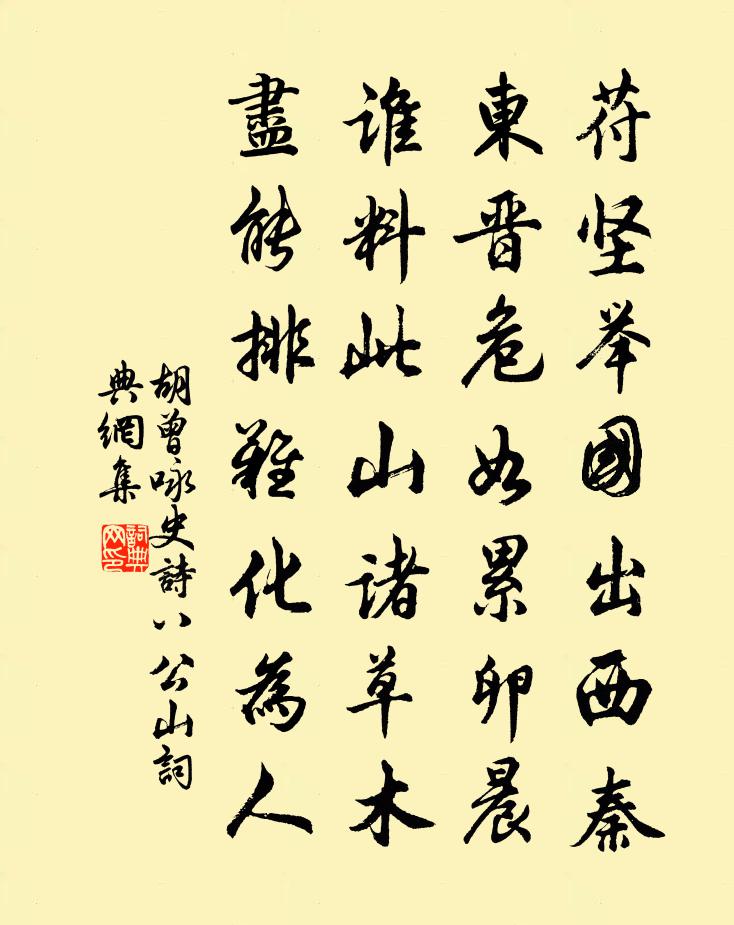 苻坚举國出西秦
東晋危如累卵晨
谁料此山诸草木
盡能排難化為人
胡曾咏史詩八公山詞
典網集
詞典
网印